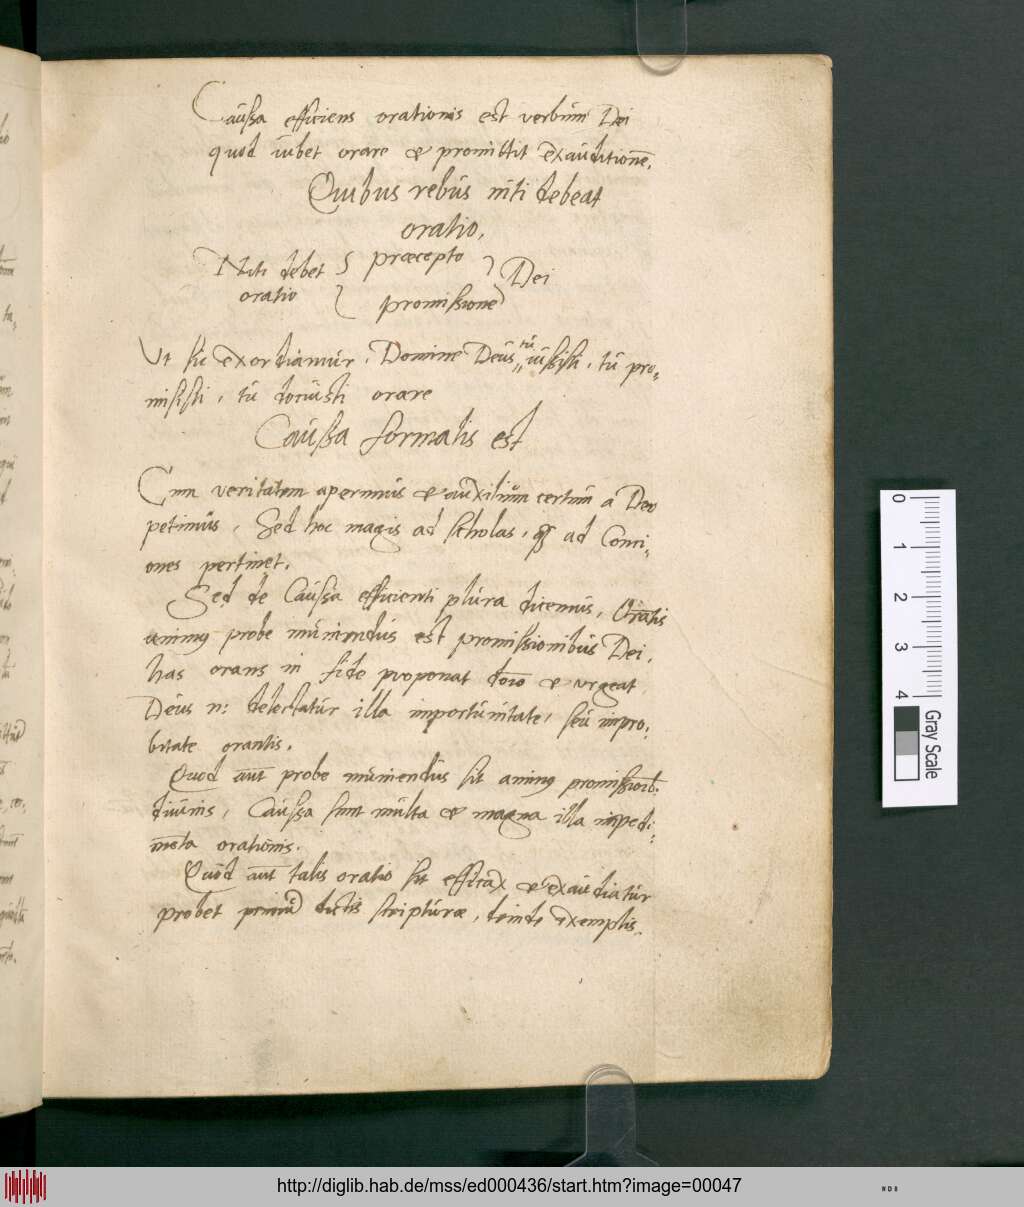 Caussa efficiens orationis est verbum Dei
quod iubet orare & promittit exauditionē.
Quibus rebus niti debeat
oratio.
Niti debet { præcepto } Dei
oratio { promissione }
Ut sic exordiamur. Domine Deus, tu iussisti, tu pro=
misisti, tu docuisti orare
Caussa formalis est
Cum veritatem aperimus & auxilium certum a Deo
petimus, Sed hoc magis ad scholas, ad Conci=
ones pertinet.
Sed de Caussa efficienti plura dicemus,
animus probe muniendus est promissionibus Dei,
has orans in fide proponat & urgeat
Deus n: delectatur illa importunitate, seu impro=
bitate orantis.
Quod aūt probe muniendus sit animus promissioīb.
diuinis, Caussa sunt multa & magna illa impedi=
mēta orationis.
Quod aūt talis oratio sit efficax & exaudiatur
probet primū dictis scripturæ, deinde exemplis.
0
1
2
3
4
Gray Scale
http://diglib.hab.de/mss/ed000436/start.htm?image=00047